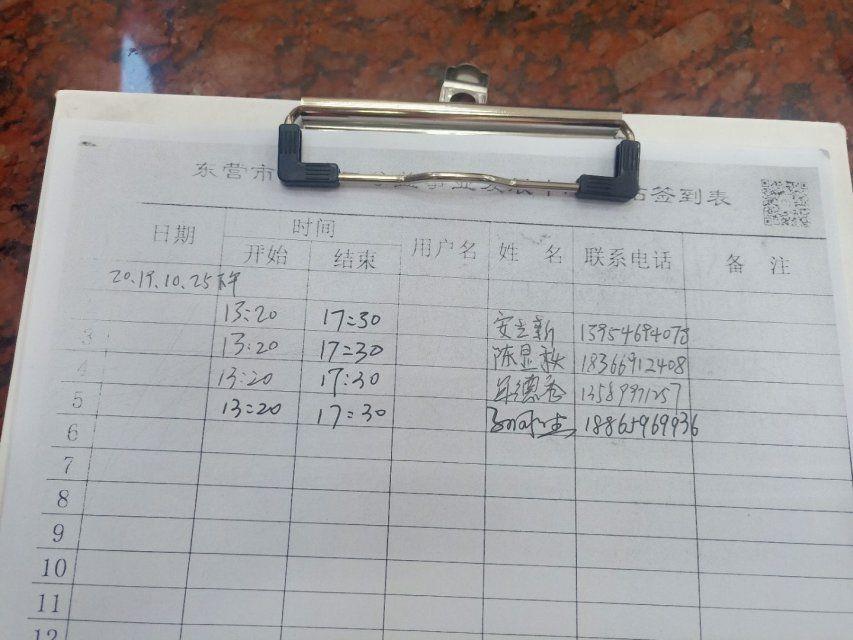 东营市 签到表
日期 时间 用户名 姓 名 联系电话 备 注
开始 结束
2019.10.25
13:20 17:30 安立新 13954694075
3 13:20 17:30 陈显 18366912408
4 13:20 17:30 13589971257
5 13:20 17:30 18865969936
6
7
8
9
10
11
12